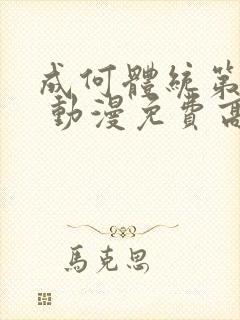 成何體統第
動漫免費高
馬克思